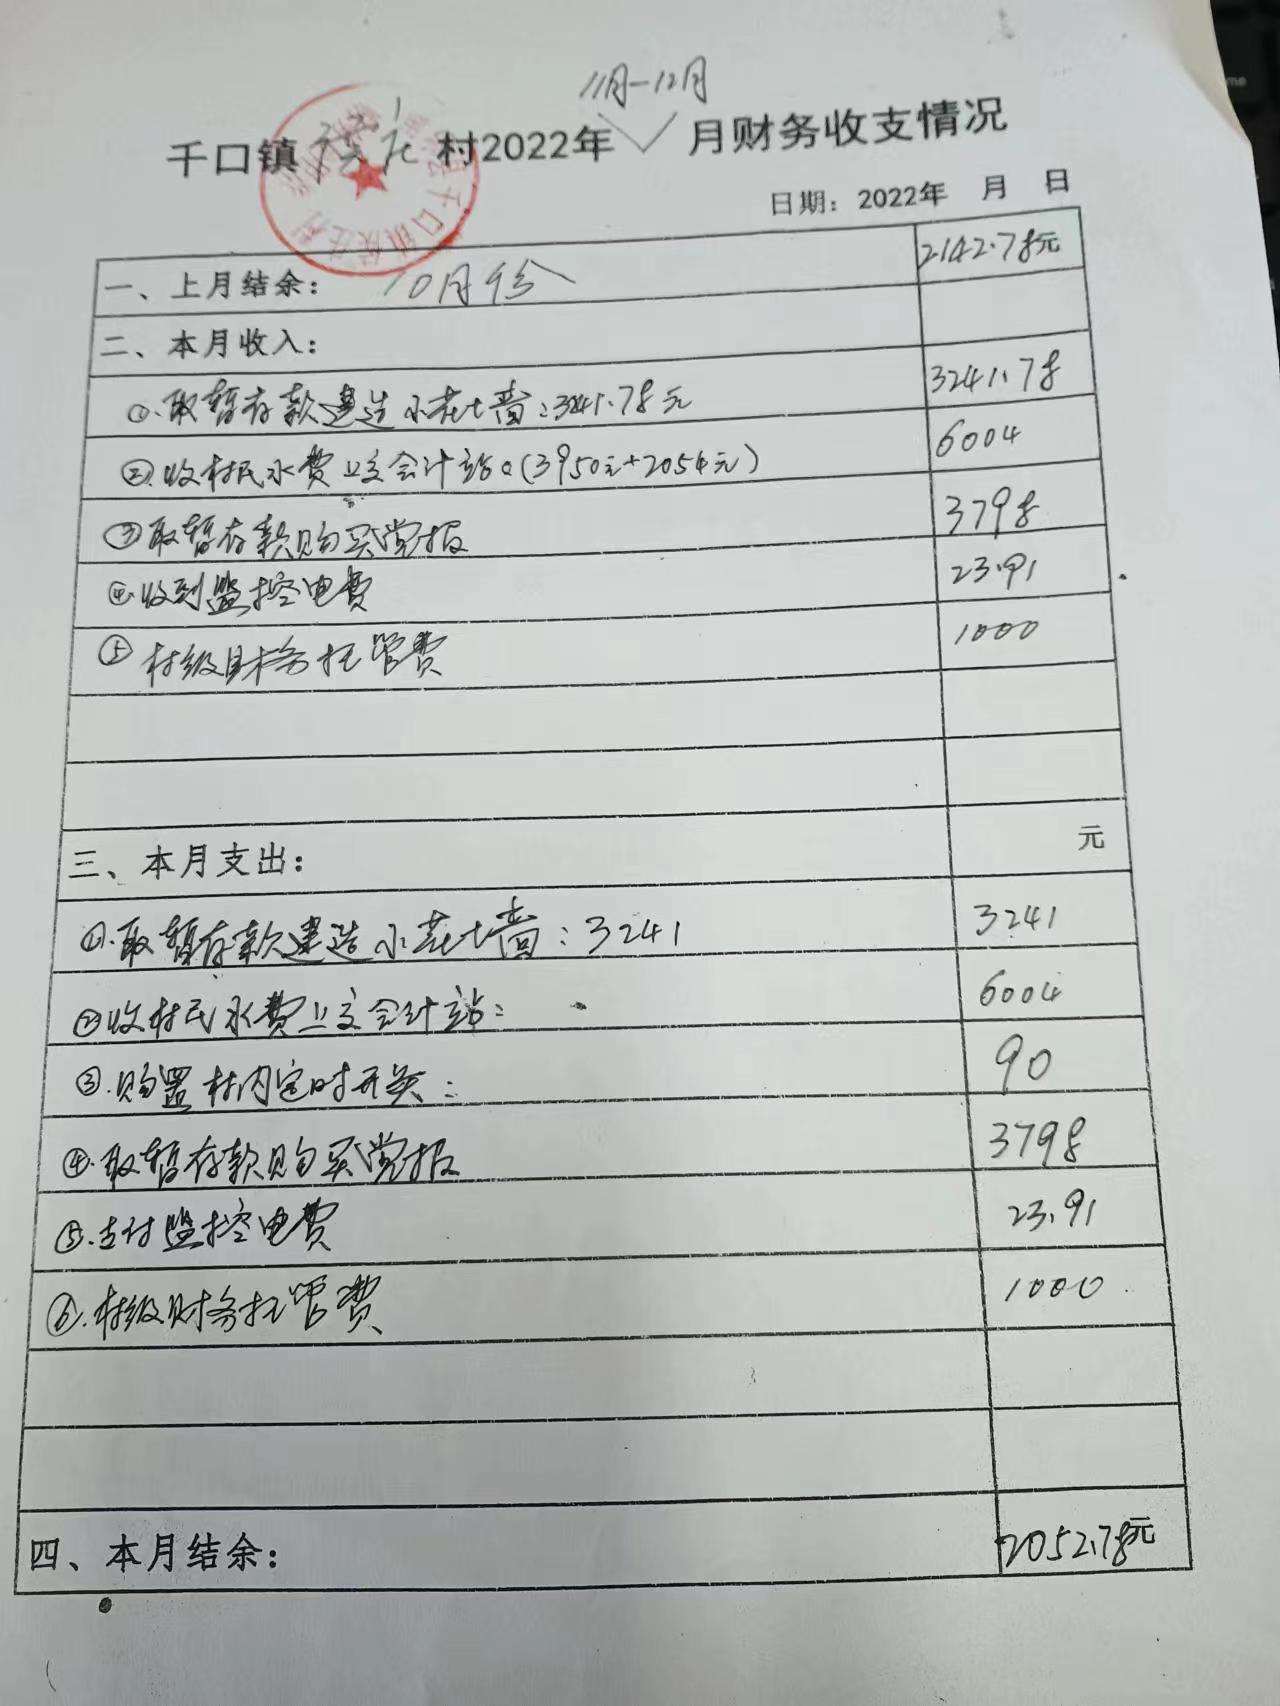 11月-12月
千口镇 村2022年 月财务收支情况
日期：2022年 月 日
一、上月结余： 10月份 2142.78元
二、本月收入：
①.取暂存款建造小花墙：3241.78元 3241.78
②.收村民水费上交会计站。(3950元+2054元) 6004
③取暂存款购买党报 3798
④.收到监控电费 23.91
⑤村级财务托管费 1000
三、本月支出： 元
①.取暂存款建造小花墙：3241 3241
②收村民水费上交会计站： 6004
③.购置村内定时开关： 90
④.取暂存款购买党报 3798
⑤.支付监控电费 23.91
⑥.村级财务托管费 1000
四、本月结余： 2052.78元